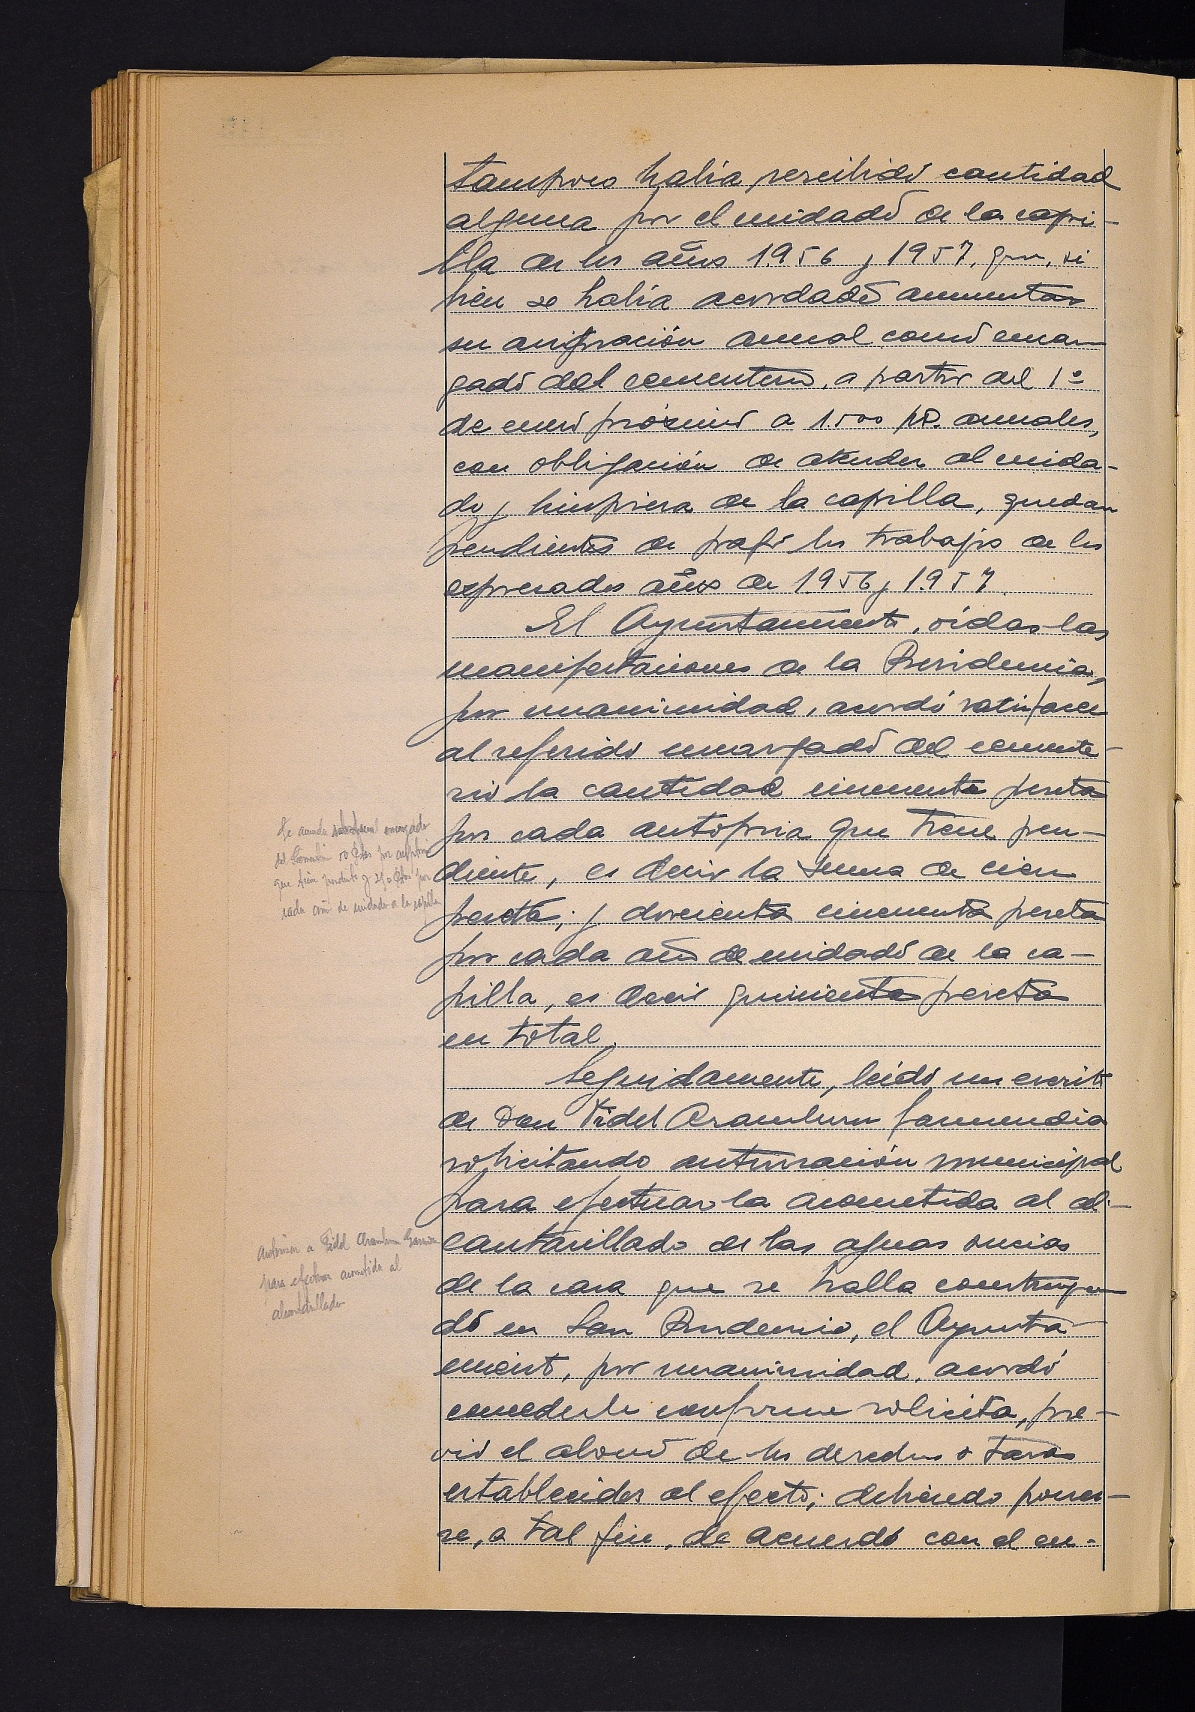 tampoco había percibido cantidad
alguna por el cuidado de la capi-
lla de los años 1956 y 1957, que, si
bien se había acordado aumentar
su asignación anual como encar
gado del cementerio, a partir del 1º
de enero próximo a 1.500 pts. anuales,
con obligación de atender al cuida-
do y limpieza de la capilla, quedan
pendientes de pago los trabajos de los
expresados años de 1956 y 1957.
El Ayuntamiento, oídas las
manifestaciones de la Presidencia,
por unanimidad, acordó satisfacer
al referido encargado del cemente-
rio la cantidad cincuenta pesetas
por cada autopsia que tiene pen-
diente, es decir la suma de cien
pesetas; y doscientas cincuenta pesetas
por cada año de cuidado de la ca-
pilla, es decir quinientas pesetas
en total.
Seguidamente, leído un escrito
de Don Fidel Aramburu Garmendia
solicitando autorización municipal
para efectuar la acometida al al-
cantarillado de las aguas sucias
de la casa que se halla construyen
do en San Prudencio, el Ayunta-
miento, por unanimidad, acordó
concederle conforme solicita, pre-
vio el abono de los derechos o tasas
establecidos al efecto; debiendo poner-
se, a tal fin, de acuerdo con el en-
Se acuerda encargado
del Cementerio 50 Ptas por autopsia
que tiene pendiente y 250 Ptas por
cada año de cuidado a la capilla
Autorizar a Fidel Aramburu Garmen
para efectuar acometida al
alcantarillado